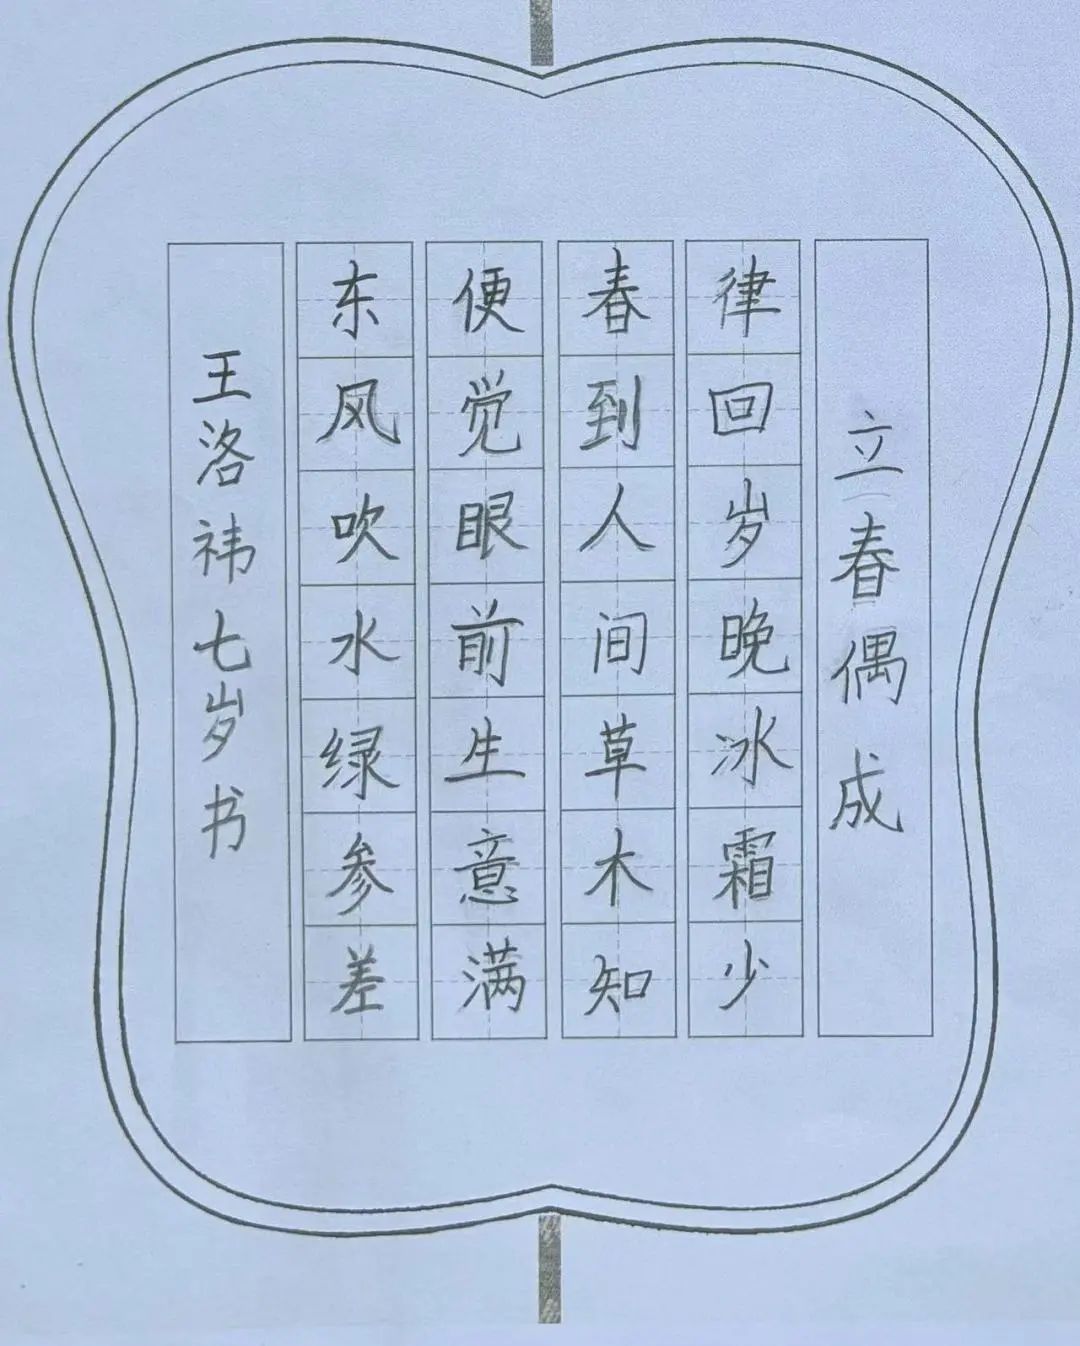 立春偶成
律回岁晚冰霜少
春到人间草木知
便觉眼前生意满
东风吹水绿参差
王洛祎七岁书